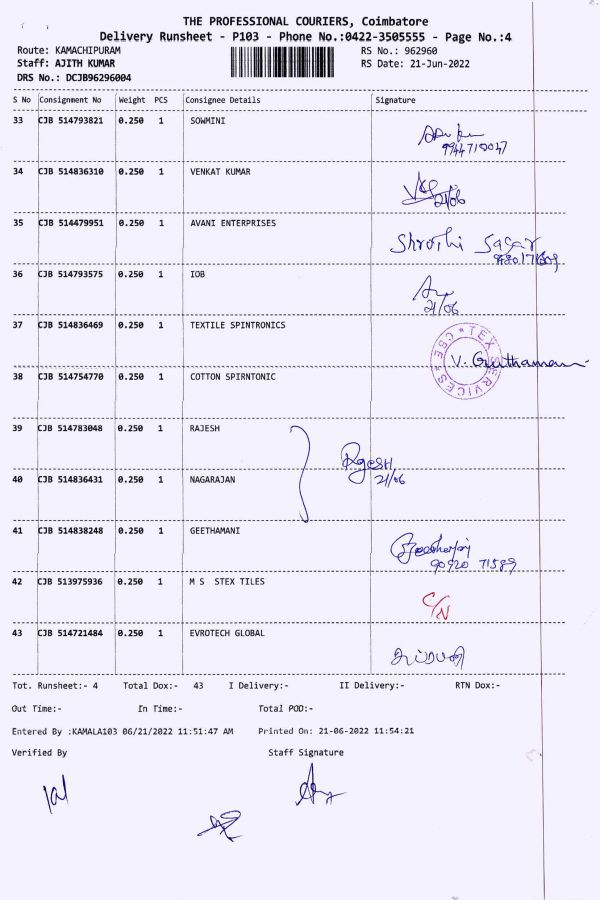 THE PROFESSIONAL COURIERS, Coimbatore
Delivery Runsheet - P103 - Phone No.:0422-3505555 - Page No.:4
Route: KAMACHIPURAM RS No.: 962960
Staff: AJITH KUMAR RS Date: 21-Jun-2022
DRS No.: DCJB96296004
S No Consignment No Weight PCS Consignee Details Signature
33 CJB 514793821 0.250 1 SOWMINI
34 CJB 514836310 0.250 1 VENKAT KUMAR 21/06
35 CJB 514479951 0.250 1 AVANI ENTERPRISES Shrothi Sagar
36 CJB 514793575 0.250 1 IOB
21/06
37 CJB 514836469 0.250 1 TEXTILE SPINTRONICS
TEX SERVICES * CBE *
38 CJB 514754770 0.250 1 COTTON SPIRNTONIC
39 CJB 514783048 0.250 1 RAJESH
Rajesh
40 CJB 514836431 0.250 1 NAGARAJAN 21/06
41 CJB 514838248 0.250 1 GEETHAMANI
90920 71589
42 CJB 513975936 0.250 1 M S STEX TILES
C/N
43 CJB 514721484 0.250 1 EVROTECH GLOBAL
Tot. Runsheet:- 4 Total Dox:- 43 I Delivery:- II Delivery:- RTN Dox:-
Out Time:- In Time:- Total POD:-
Entered By :KAMALA103 06/21/2022 11:51:47 AM Printed On: 21-06-2022 11:54:21
Verified By Staff Signature